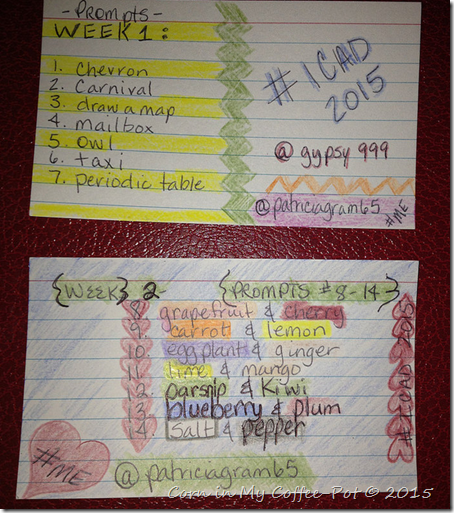 - Prompts -
WEEK 1:
1. Chevron
2. Carnival
3. draw a map
4. mailbox
5. owl
6. taxi
7. periodic table
# ICAD
2015
@ gypsy 999
@patriciagram65
#ME
{WEEK} 2
{PROMPTS # 8-14}
8. grapefruit & cherry
9. carrot & lemon
10. eggplant & ginger
11. lime & mango
12. parsnip & Kiwi
13. blueberry & plum
14. Salt & pepper
# ICAD 2015
#ME
@patriciagram65
Corn in My Coffee Pot © 2015